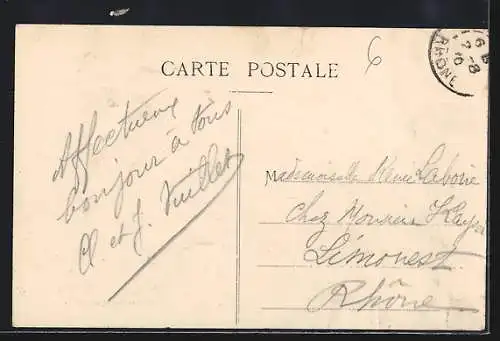 CARTE POSTALE
6
RHÔNE
Affectueux
bonjour à tous
Cl. et J. Vuillet
Mademoiselle Renée Laboire
Chez Monsieur
Limonest
Rhône